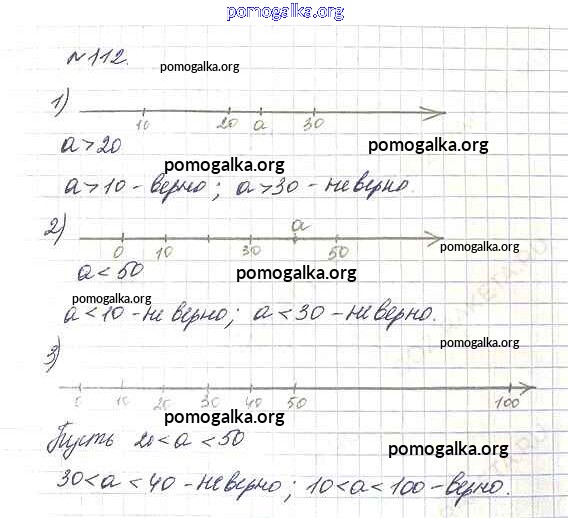 pomogalka.org
№112.
pomogalka.org
1)
10 20 a 30
a > 20
pomogalka.org
pomogalka.org
a > 10 - верно; a > 30 - неверно.
2)
a
0 10 30 50
pomogalka.org
a < 50
pomogalka.org
pomogalka.org
a < 10 - не верно; a < 30 - неверно.
pomogalka.org
3)
10 20 30 40 50 100
pomogalka.org
Пусть 20 < a < 50
pomogalka.org
30 < a < 40 - неверно; 10 < a < 100 - верно.